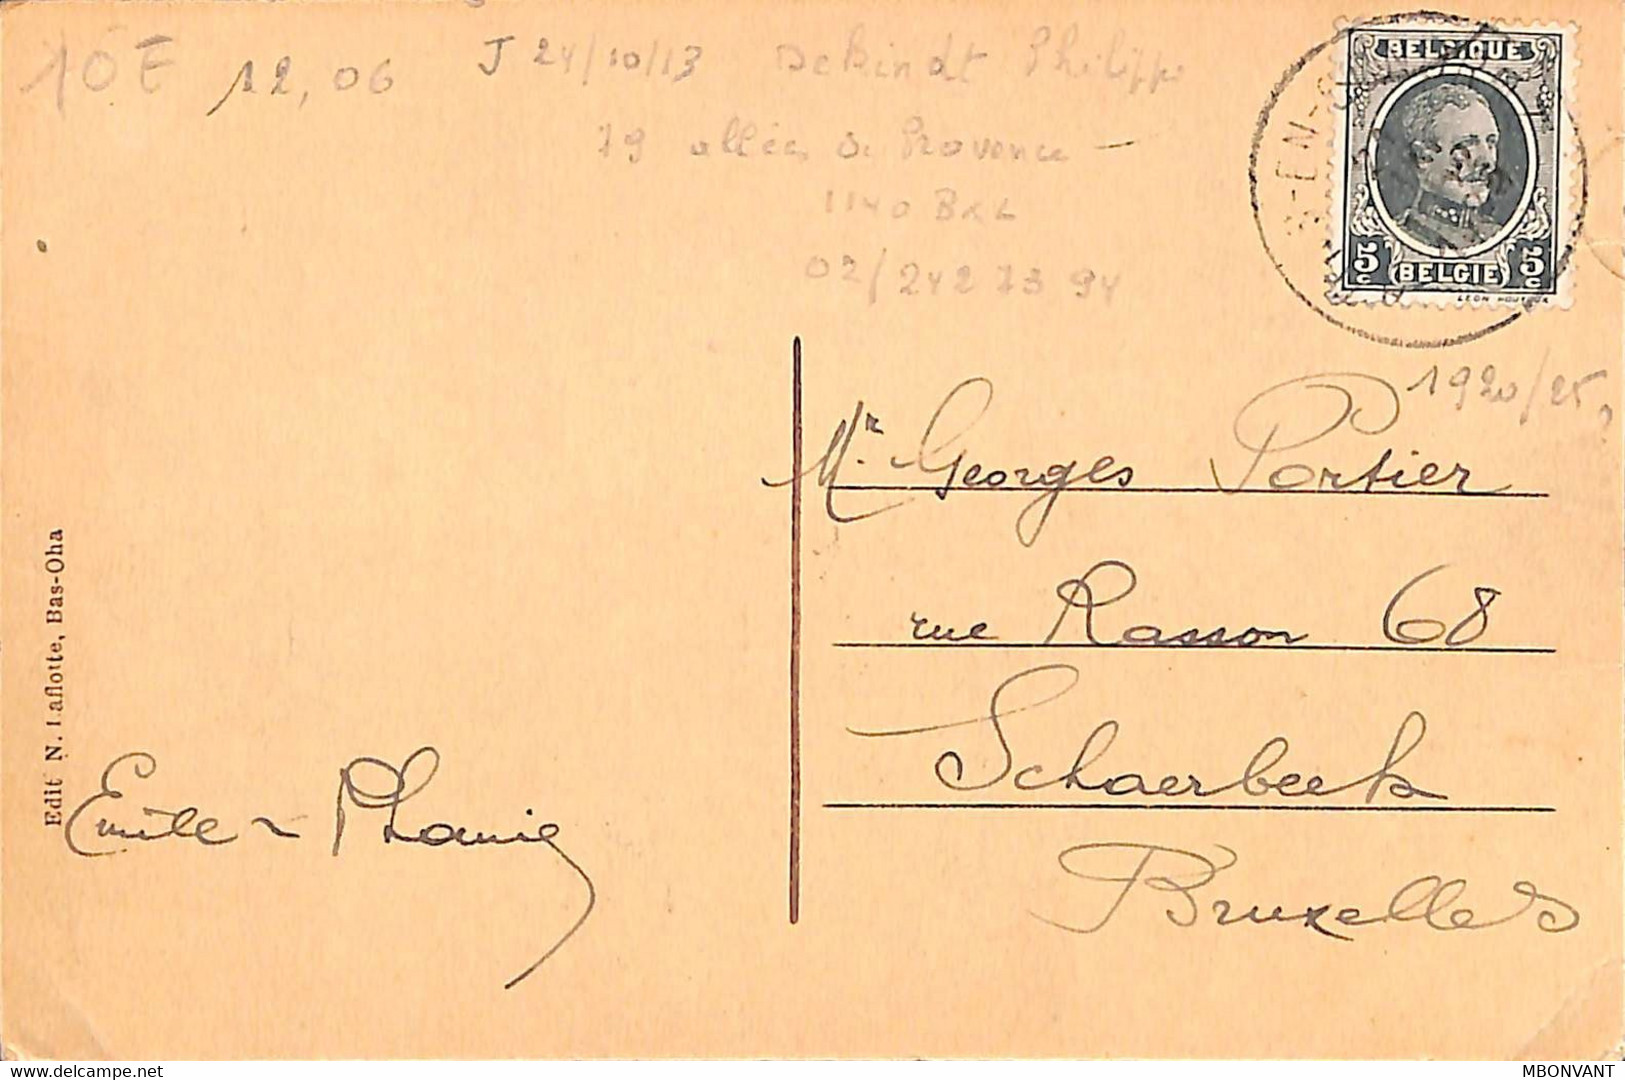 10 E 12,06 J 24/10/13 DeBindt Philippe
79 allée de Provence
1140 BXL
02/242 73 94
BELGIQUE
5c BELGIE 5c
1920/25?
Mr. Georges Portier
rue Rasson 68
Schaerbeek
Bruxelles
Emile ~
Edit N. Laflotte, Bas-Oha
delcampe.net
MBONVANT